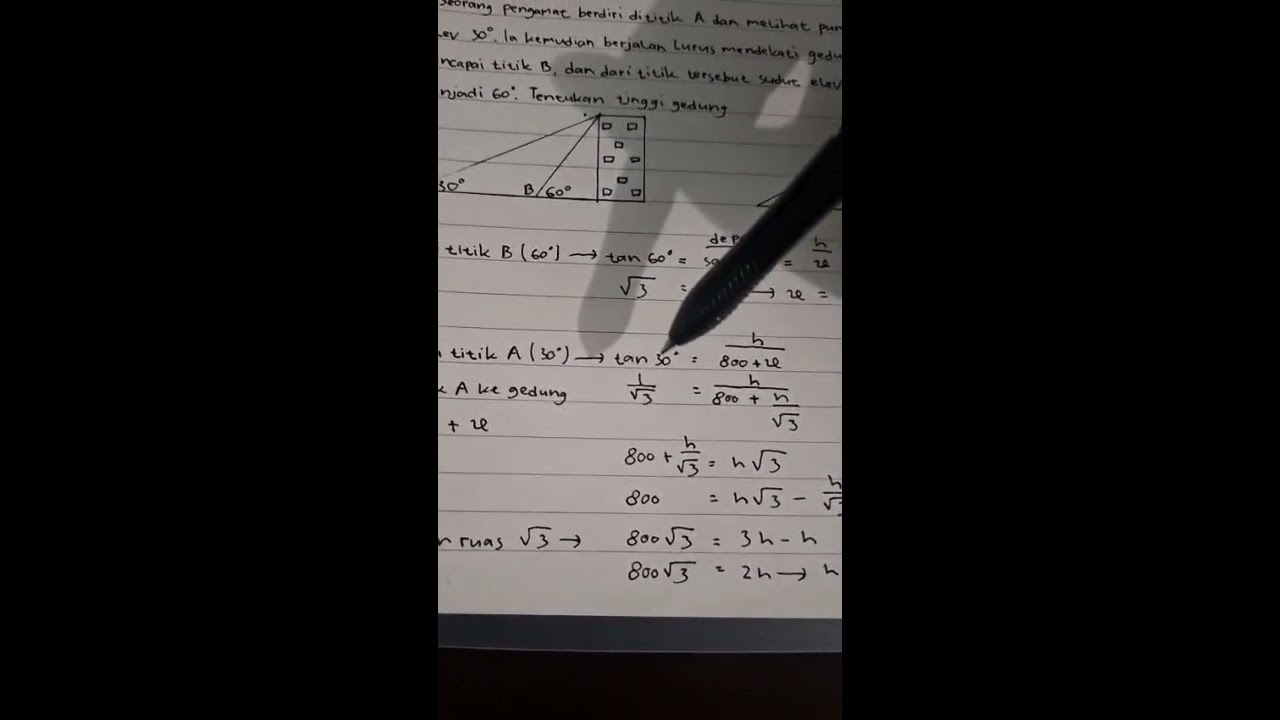 Seorang pengamat berdiri dititik A dan melihat
30°. Ia kemudian berjalan lurus mendekati
titik B, dan dari titik tersebut sudut
60°. Tentukan tinggi gedung
30°
B 60°
titik B (60°) → tan 60° = = h/x
√3 = → x =
titik A (30°) → tan 30° = h/(800 + x)
A ke gedung 1/√3 = h/(800 + h/√3)
+ x
800 + h/√3 = h√3
800 = h√3 - h/√3
ruas √3 → 800√3 = 3h - h
800√3 = 2h → h